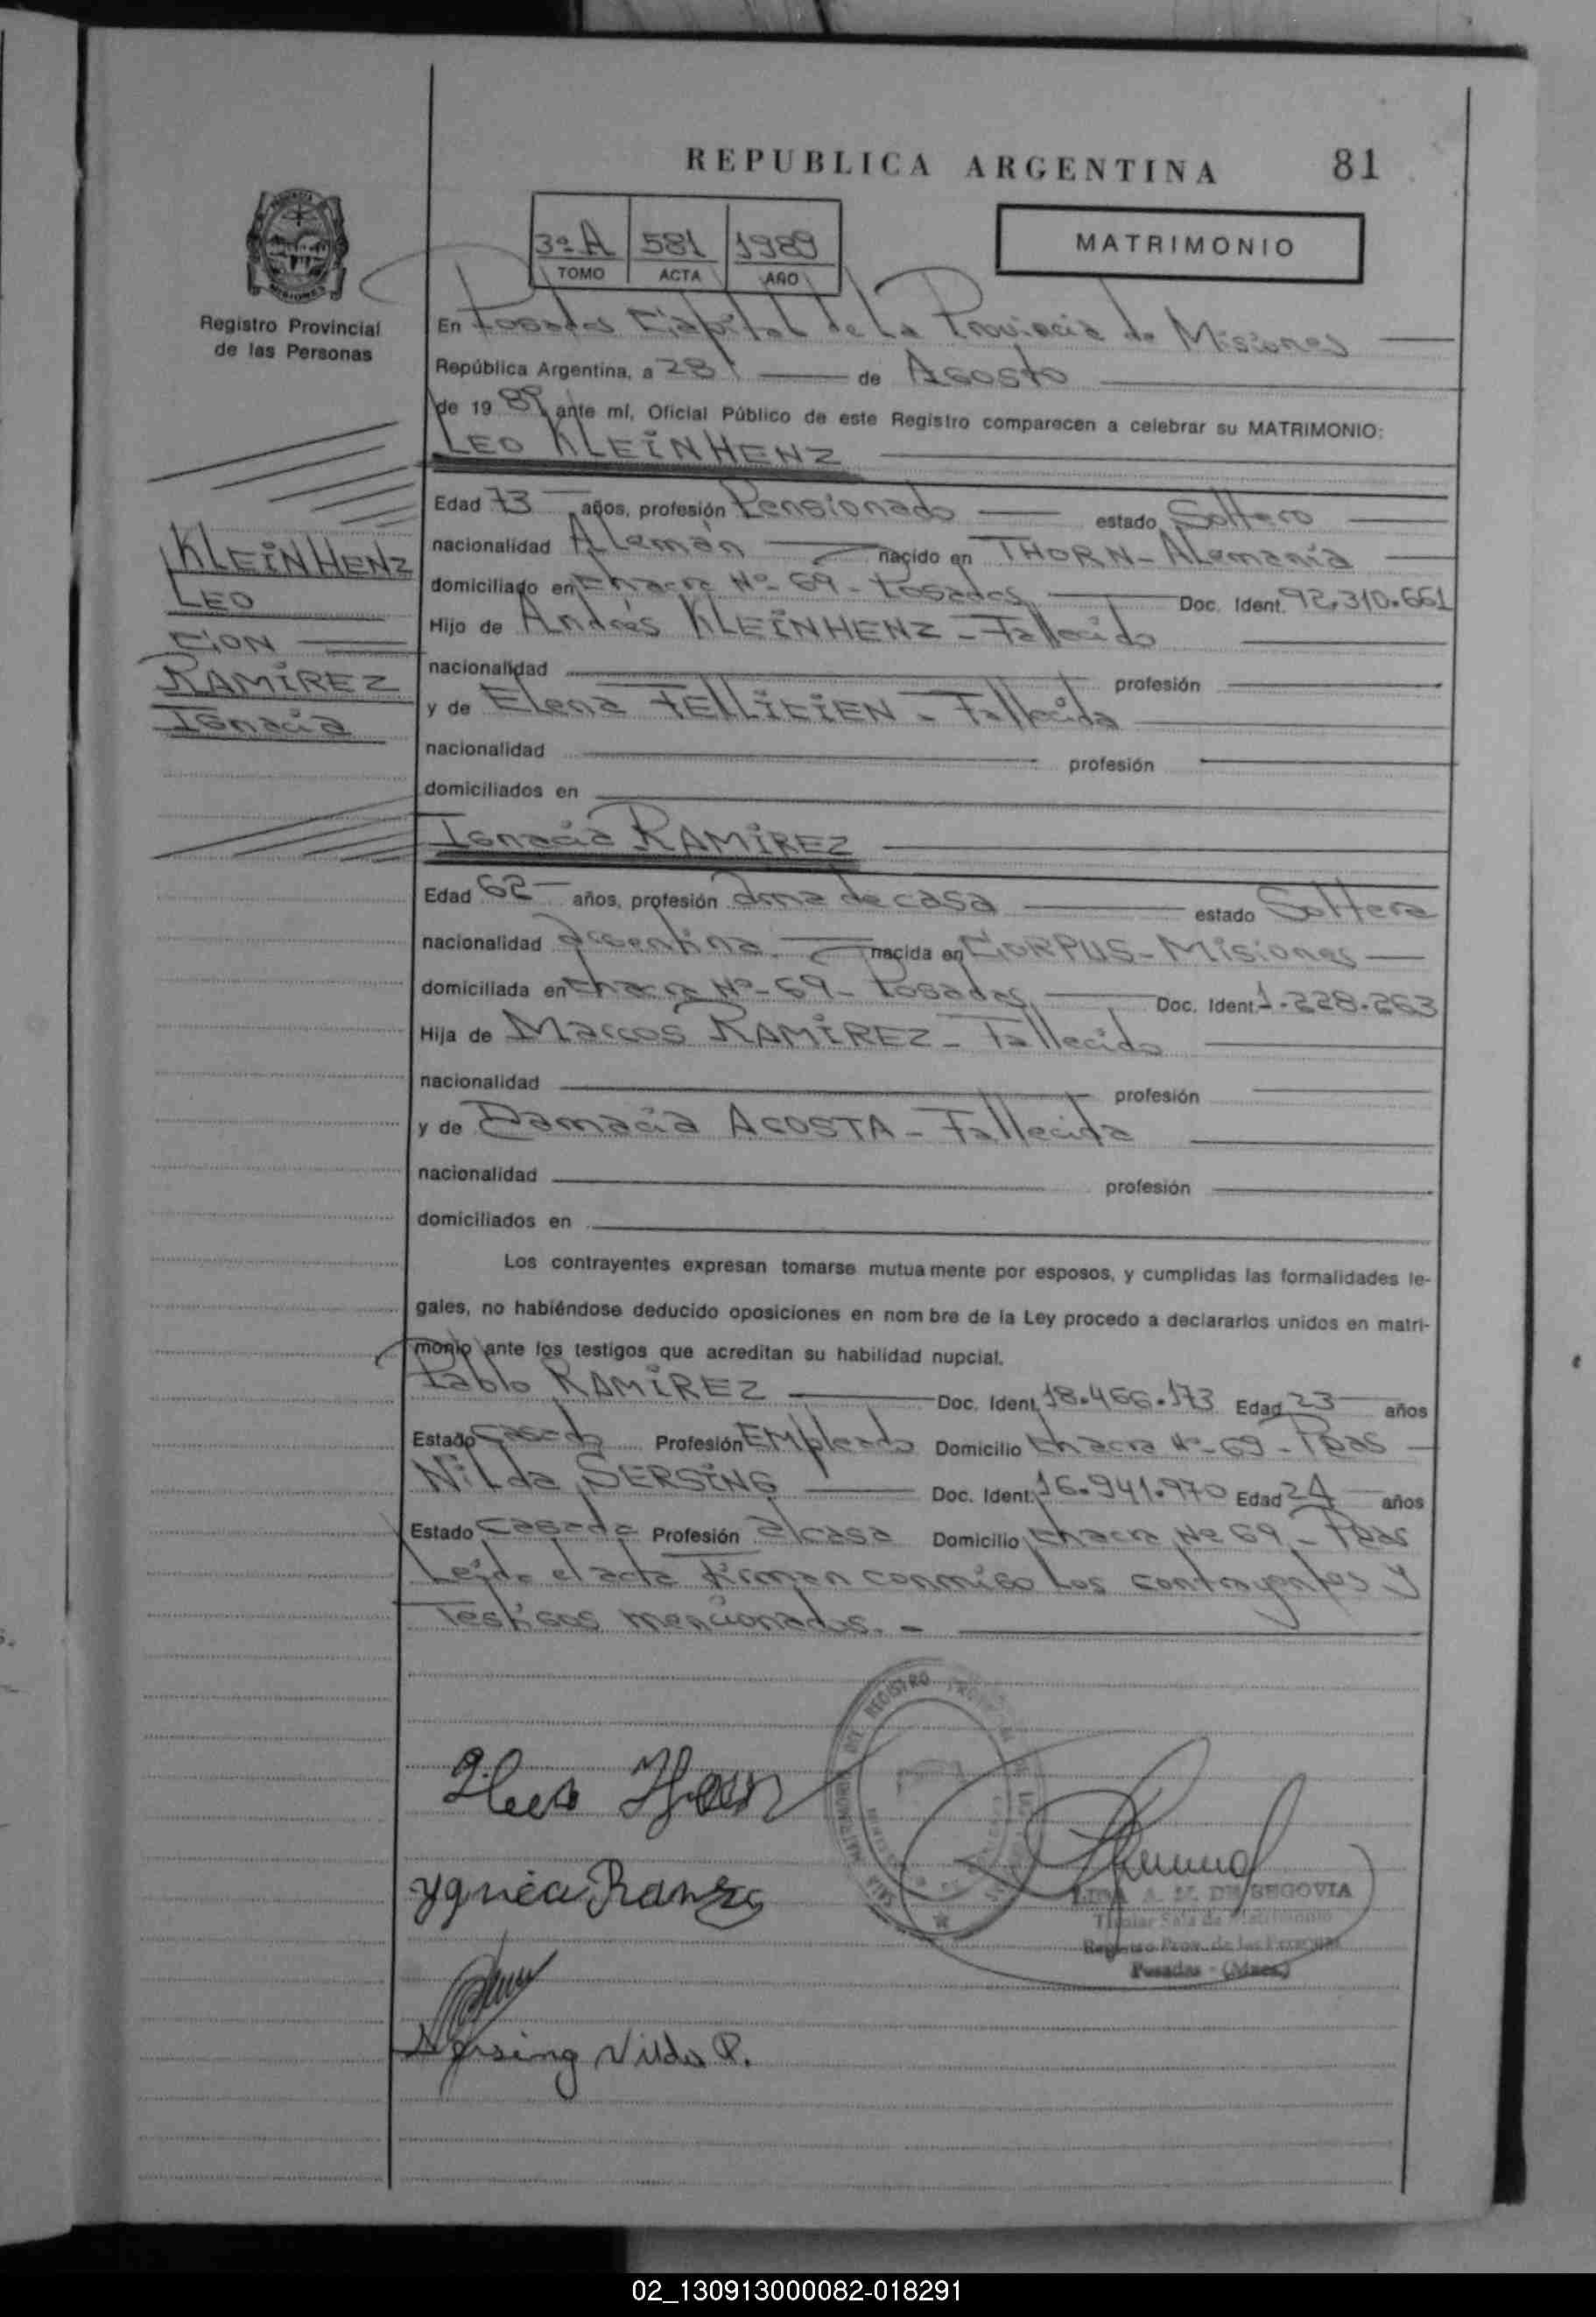 REPUBLICA ARGENTINA 81
3º A 581 1989
TOMO ACTA AÑO
MATRIMONIO
Registro Provincial
de las Personas
En Posadas Capital de la Provincia de Misiones
República Argentina, a 28 de Agosto
de 19 89 ante mí, Oficial Público de este Registro comparecen a celebrar su MATRIMONIO:
LEO KLEINHENZ
Edad 73 años, profesión Pensionado estado Soltero
nacionalidad Alemán nacido en THORN - Alemania
domiciliado en Chacra Nº 69 - Posadas Doc. Ident. 92.310.661
Hijo de Andrés KLEINHENZ - Fallecido
nacionalidad profesión
y de Elena FELLICIEN - Fallecida
nacionalidad profesión
domiciliados en
KLEINHENZ
LEO
CON
RAMIREZ
Ignacia
Ignacia RAMIREZ
Edad 62 años, profesión ama de casa estado Soltera
nacionalidad argentina nacida en CORPUS - Misiones
domiciliada en Chacra Nº 69 - Posadas Doc. Ident. 1.228.263
Hija de Marcos RAMIREZ - Fallecido
nacionalidad profesión
y de Damacia ACOSTA - Fallecida
nacionalidad profesión
domiciliados en
Los contrayentes expresan tomarse mutuamente por esposos, y cumplidas las formalidades le-
gales, no habiéndose deducido oposiciones en nom bre de la Ley procedo a declararlos unidos en matri-
monio ante los testigos que acreditan su habilidad nupcial.
Pablo RAMIREZ Doc. Ident. 18.466.173 Edad 23 años
Estado Casado Profesión Empleado Domicilio Chacra Nº 69 - Pdas
Nilda SERSING Doc. Ident. 16.941.970 Edad 24 años
Estado Casada Profesión a/casa Domicilio Chacra Nº 69 - Pdas
Leída el acta firman conmigo los contrayentes y
Testigos mencionados. -
SALA MATRIMONIO DEL REGISTRO
LIDA A. M. DE SEGOVIA
Titular Sala de Matrimonio
Registro Prov. de las Personas
Posadas - (Mnes.)
Sersing Nilda P.
02_130913000082-018291